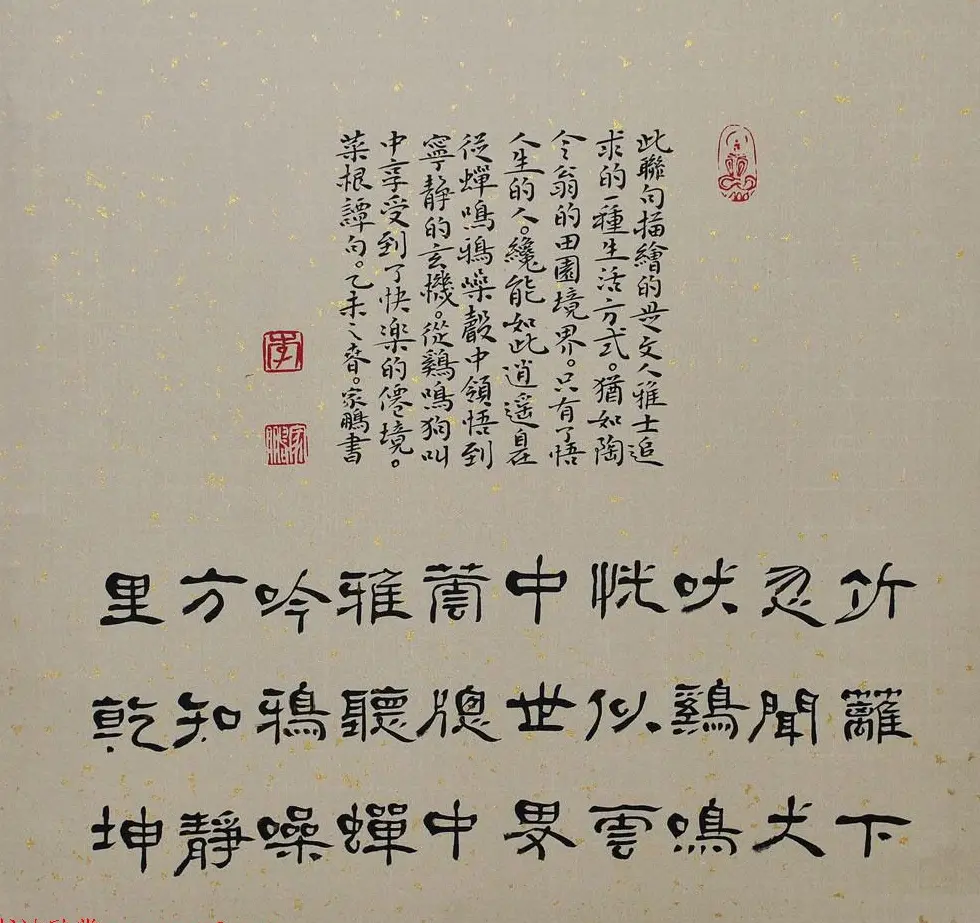 此聯句描繪的是文人雅士追
求的一種生活方式。猶如陶
令翁的田園境界。只有了悟
人生的人。纔能如此逍遥自在
從蟬鳴鴉噪聲中領悟到
寧靜的玄機。從鷄鳴狗叫
中享受到了快楽的僊境。
菜根譚句。乙未之春。家鵬書
李
家鵬
竹籬下
忽聞犬
吠鷄鳴
恍似雲
中世界
蕓牕中
雅聽蟬
吟鴉噪
方知靜
里乾坤